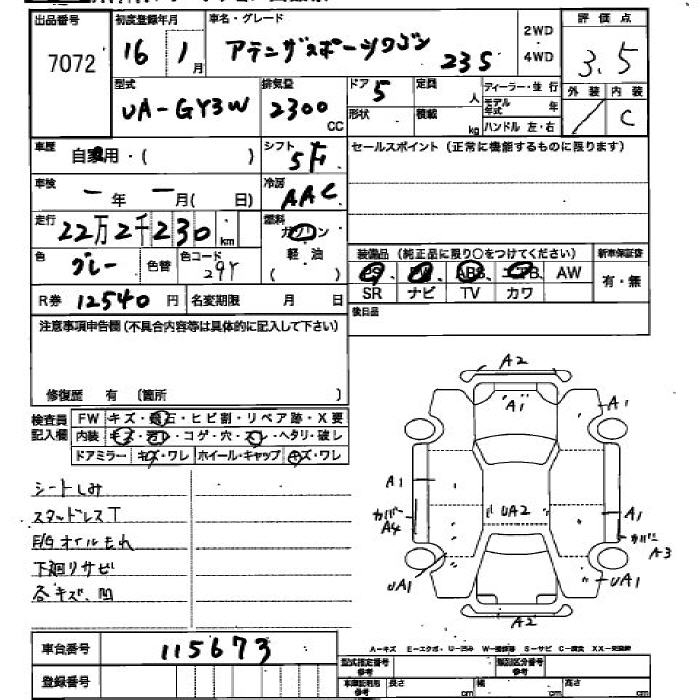 出品番号 初度登録年月 車名・グレード 2WD 評価点
7072 16 1月 アテンザスポーツワゴン 23S 4WD 3.5
型式 排気量 ドア 定員 ディーラー・並行 外装 内装
UA-GY3W 2300 CC 5 人 モデル年式 年 / C
形状 積載 kg ハンドル 左・右
車歴 自家用・( ) シフト 5F セールスポイント(正常に機能するものに限ります)
車検 ー年ー月( 日) 冷房 AAC
走行 22万2千230 km 燃料 ガソリン
色 グレー 色替 色コード 29Y 軽油 ( )
装備品(純正品に限り○をつけてください) 新車保証書
PS PW ABS エアB AW 有・無
SR ナビ TV カワ
R券 12540円 名変期限 月 日 後日品
注意事項申告欄(不具合内容等は具体的に記入して下さい)
修復歴 有 (箇所 )
検査員記入欄 FW キズ・飛石・ヒビ割・リペア跡・X要
内装 キズ・汚れ・コゲ・穴・スレ・ヘタリ・破レ
ドアミラー キズ・ワレ ホイール・キャップ キズ・ワレ
シートしみ
スタッドレスT
E/Gオイルもれ
下廻りサビ
各キズ、凹
A2
A1 A1
A1 UA2 A1
カバー A4 カバー A3
UA1 UA1
A2
車台番号 115673
A-キズ E-エクボ U-凹み W-補修等 S-サビ C-腐食 XX-交換済
登録番号 型式指定番号 参考 類別区分番号 参考
車庫証明用 参考 長さ cm 幅 cm 高さ cm